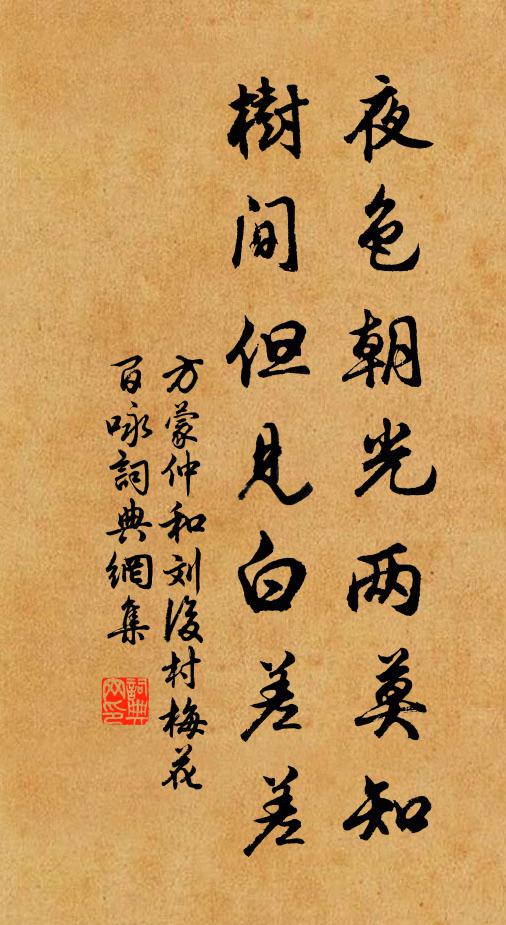 夜色朝光两莫知
樹间但见白差差
方蒙仲和刘後村梅花
百咏詞典網集
詞典
网印